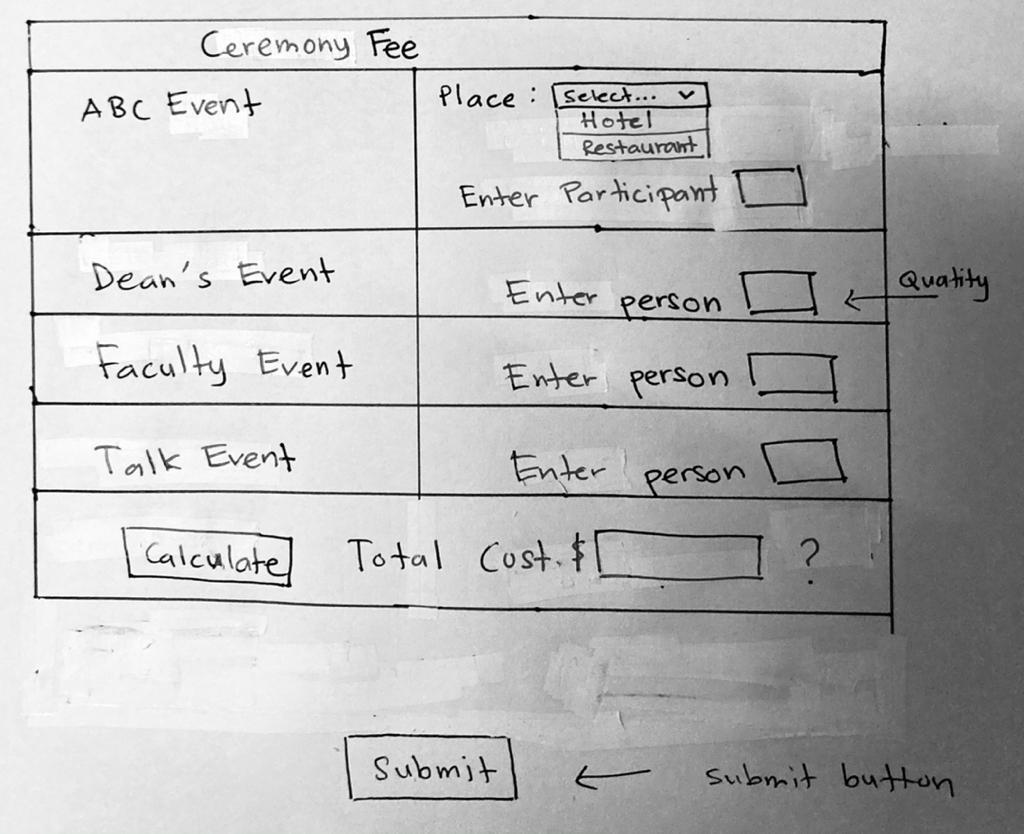 Ceremony Fee
ABC Event
Place : Select...
Hotel
Restaurant
Enter Participant
Dean's Event
Enter person
Quatity
Faculty Event
Enter person
Talk Event
Enter person
Calculate Total Cost. $ ?
Submit
submit button